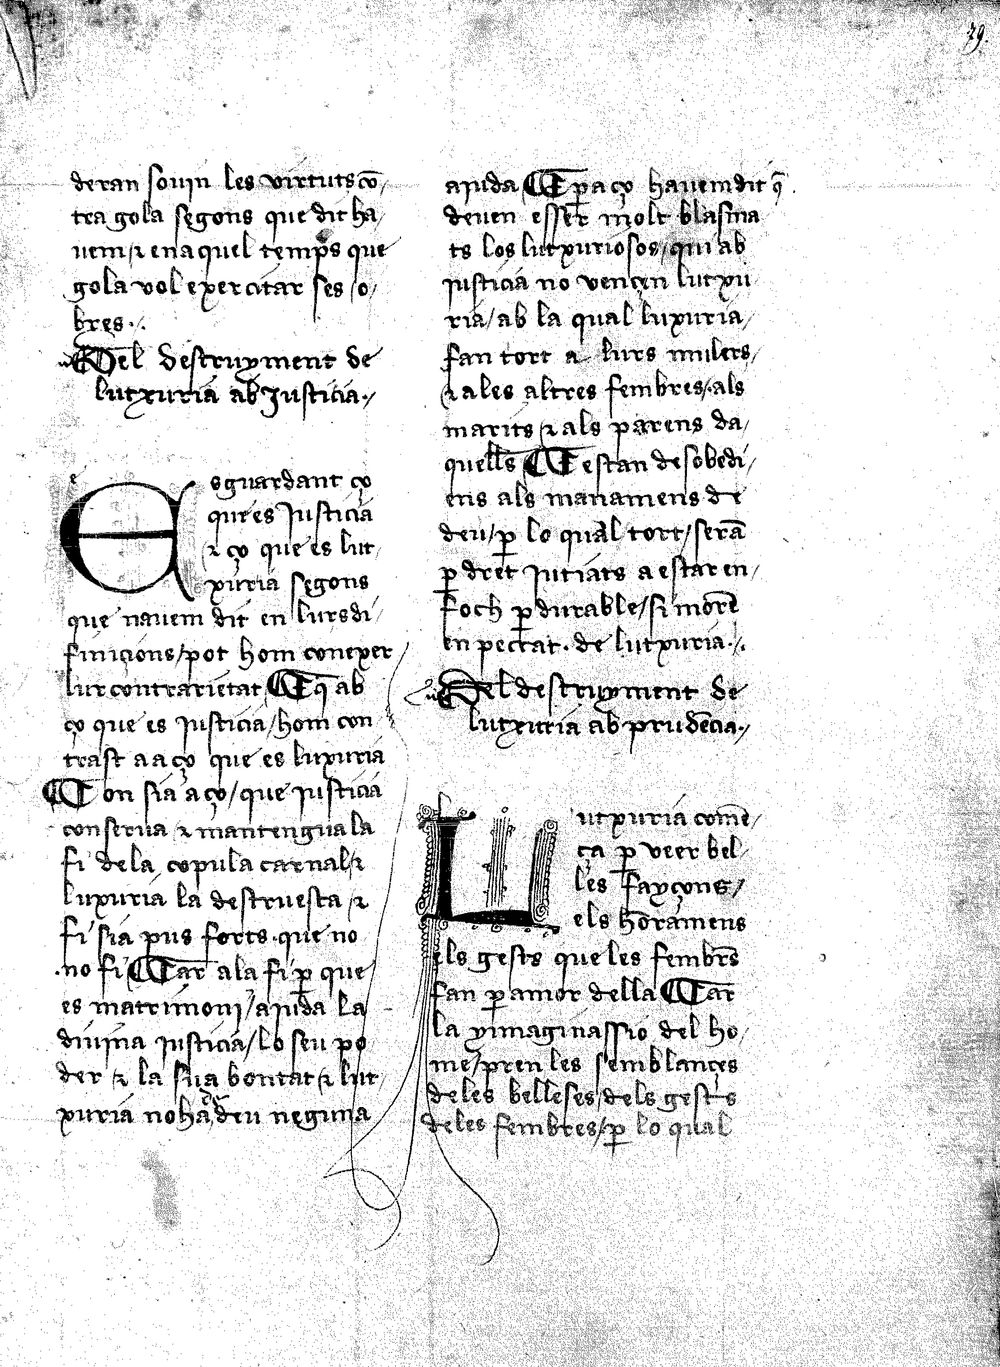 79.
deran souin les virtuts cō-
tra gola segons que dit ha-
uem / ⁊ en aquel temps que
gola vol exercitar ses / o-
bres ·/.
¶ Del destruyment de
lutxuria ab Justicia ·/
Esguardant ço
que es Justicia
⁊ ço que es lut-
xuria segons
que hauem dit en lurs di-
finicions / pot hom conexer
lur contrarietat ¶ E q̄ ab
ço que es justicia / hom con
trast a aço que es luxuria
¶ E on sia aço / que justicia
conserua ⁊ mantengua la
fi de la copula carnal / ⁊
luxuria la destruesca ⁊
fi sia pus forts · que no
no fi ¶ Car a la fi ꝑ que
es matrimoni / ajuda la
diuina justicia / lo seu po
der ⁊ la sua bontat ⁊ lut-
xuria no ha de deu neguna
ajuda ¶ E ꝑ aço hauem dit q̄
deuen esser molt blasma
ts los lutxuriosos / qui ab
justicia no vençen lutxu-
ria / ab la qual luxuria /
fan tort a lurs mulers /
⁊ a les altres fembres / als
marits ⁊ als parens da-
quells ¶ E estan desobedi-
ens als manamens de
deu / ꝑ lo qual tort / serā
ꝑ dret jutiats a estar en-
foch ꝑdurable / si morē
en peccat · de lutxuria ·/.
¶ Del destruyment de
lutxuria ab prudēcia ·/
Lutxuria comē-
ça ꝑ veer bel-
les fayçons /
els hōramens
els gests que les fembrs
fan ꝑ amor della ¶ Car
la ymaginassio del ho-
me / pren les semblançes
de les belleses / dels gests
de les fembres / ꝑ lo qual